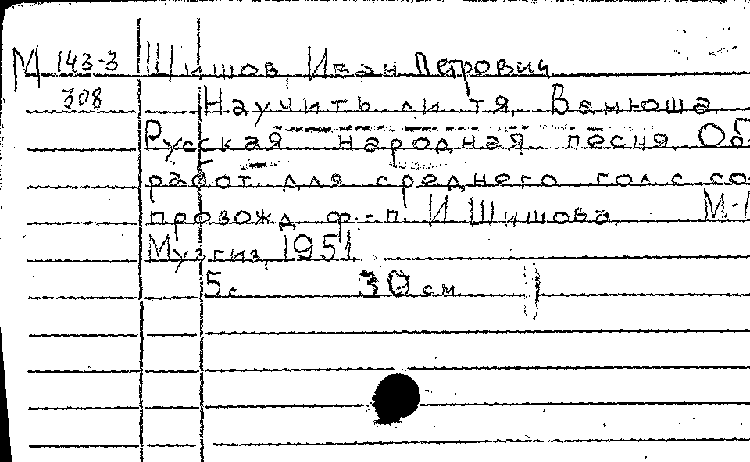 М 143-3 Шишов, Иван Петрович
308 Научить ли тя, Ванюша
Русская народная песня Об-
работ. для среднего гол. с со-
провожд. ф.-п. И. Шишова. М-
Музгиз, 1951.
5 с. 30 см.